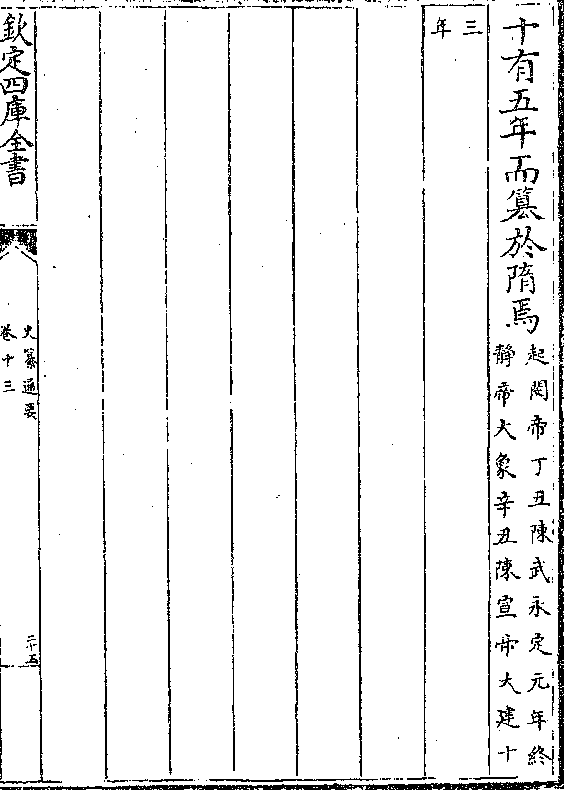 十有五年而篡於隋焉
起閔帝丁丑陳武永定元年終
靜帝大象辛丑陳宣帝大建十
三
年
欽定四庫全書
史纂通要
卷十三
二十五